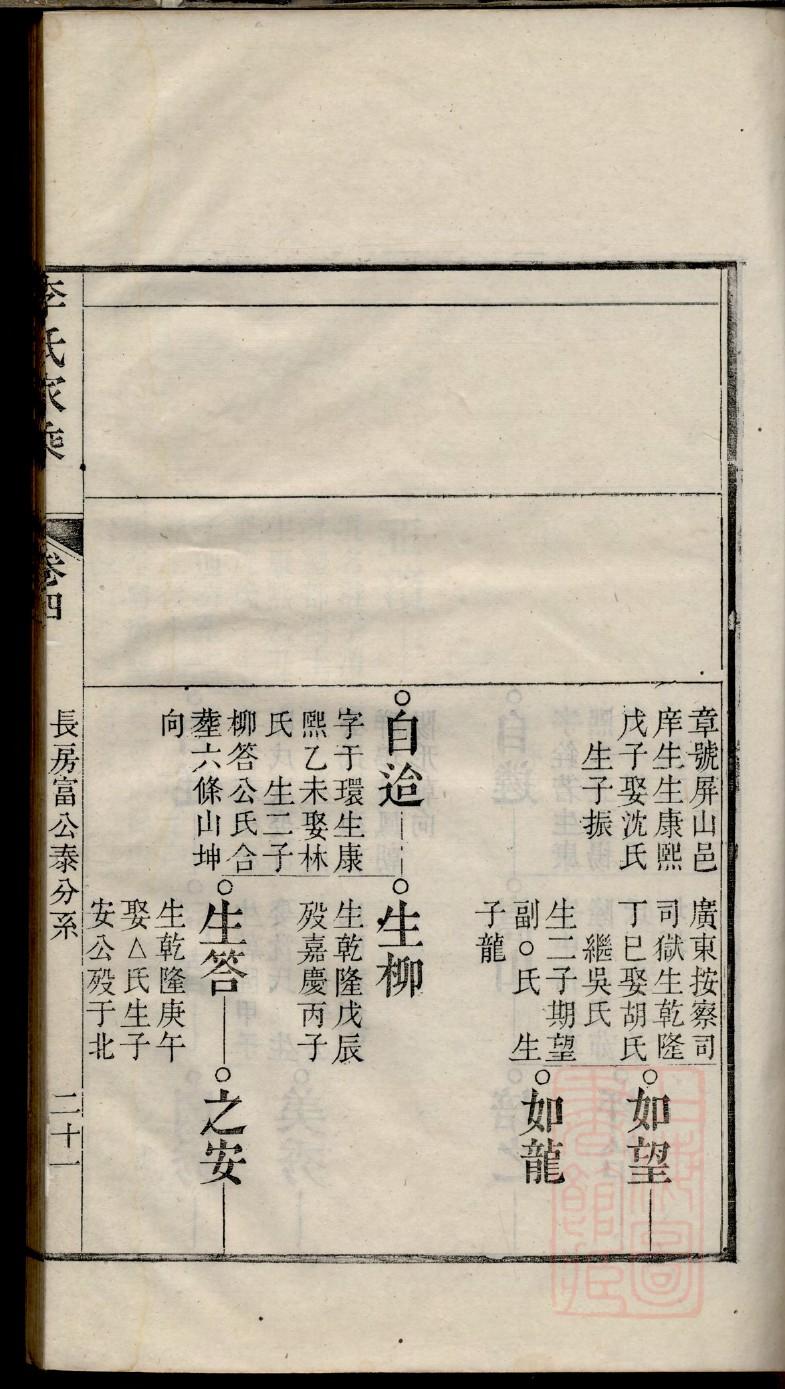 章號屏山邑
庠生生康熙
戊子娶沈氏
生子振
○自迨
字于環生康
熙乙未娶林
氏　生二子
柳答公氏合
塟六條山坤
向
廣東按察司
司獄生乾隆
丁巳娶胡氏
繼吳氏
生二子期望
副○氏　生
子龍
○生柳
生乾隆戊辰
歿嘉慶丙子
○生答
生乾隆庚午
娶△氏生子
安公歿于北
○如望
○如龍
○之安
李氏家乘
卷四
長房富公泰分系
二十一